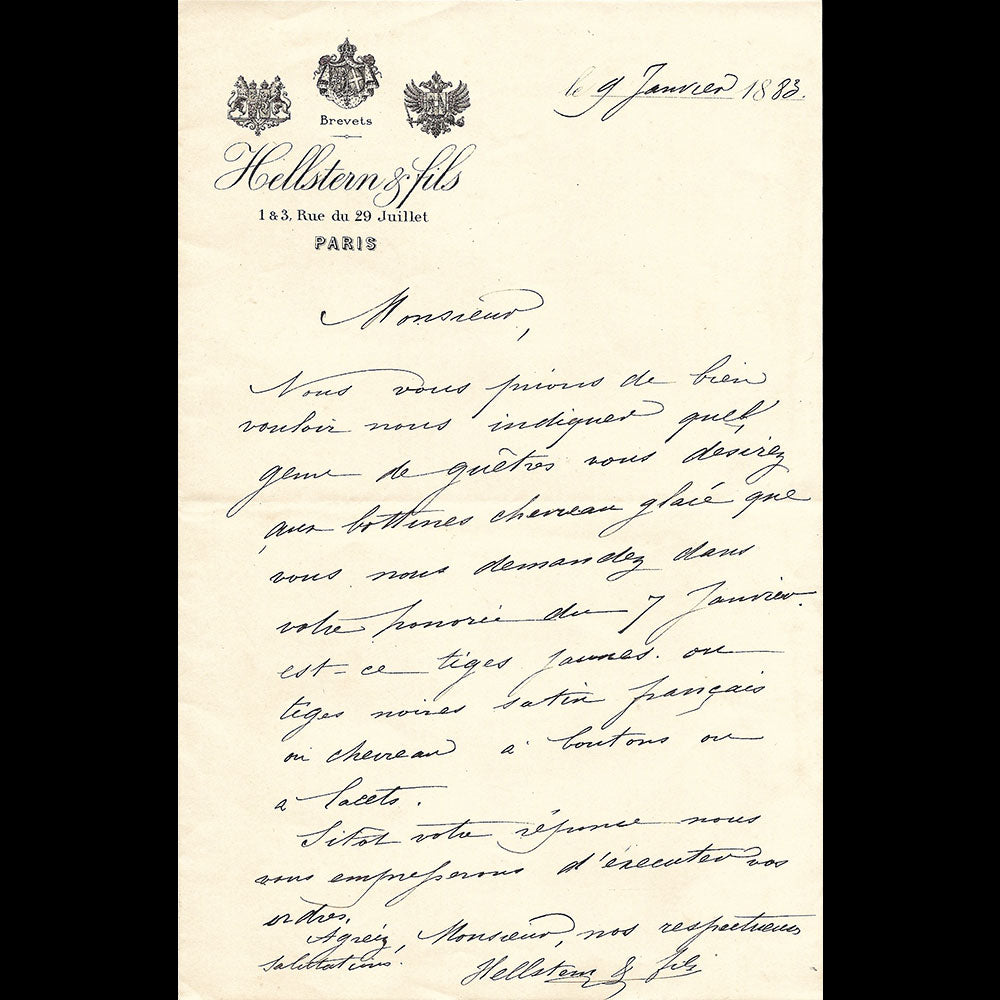 le 9 Janvier 1883.
Brevets
Hellstern & fils
1 & 3, Rue du 29 Juillet
PARIS
Monsieur,
Nous vous prions de bien
vouloir nous indiquer quel
genre de guêtres vous desirez
aux bottines chevreau glacé que
vous nous demandez dans
votre honorée du 7 Janvier.
est-ce tiges jaunes. ou
tiges noires satin français
ou chevreau à boutons ou
a lacets.
Sitot votre réponse nous
nous empresserons d'éxecuter vos
ordres.
Agréez, Monsieur, nos respectueuses
salutations.
Hellstern & fils